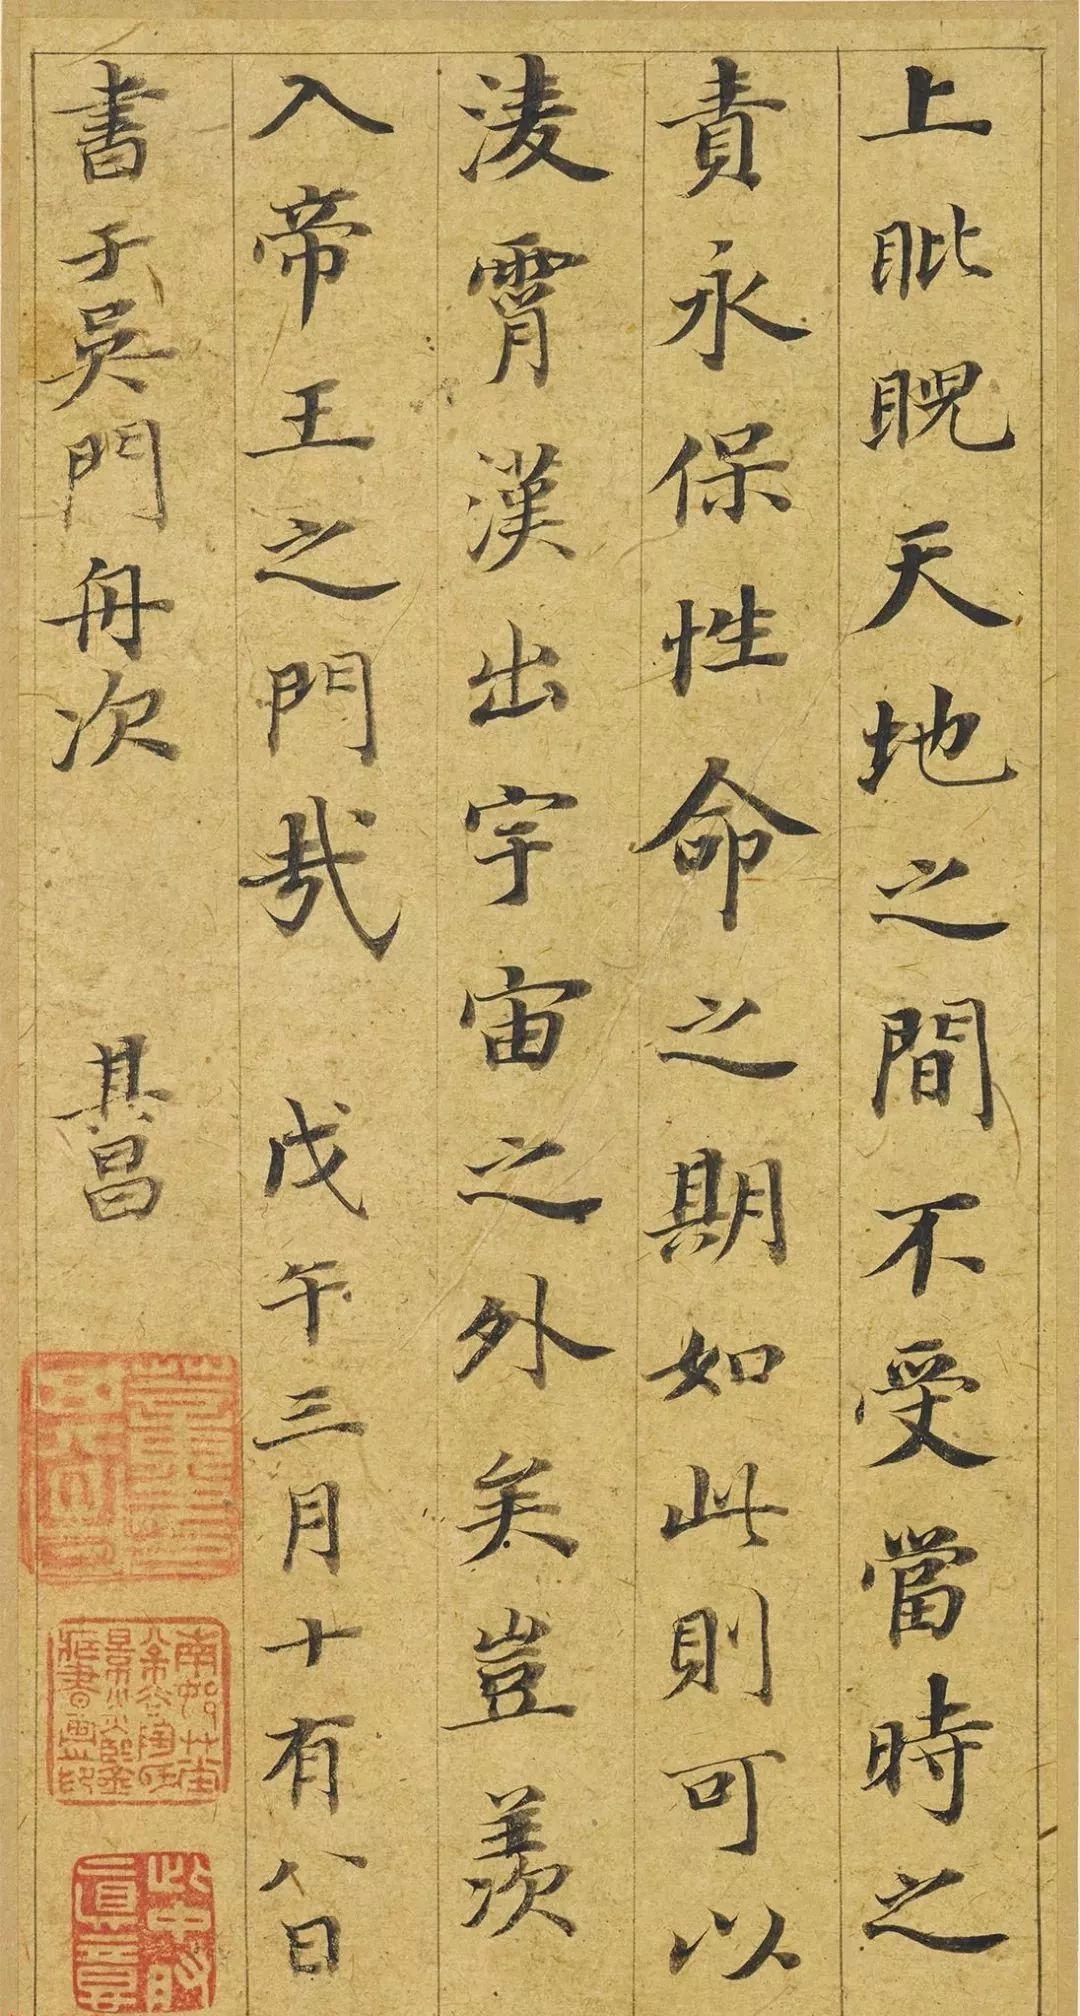 上睥睨天地之間不受當時之
責永保性命之期如此則可以
淩霄漢出宇宙之外矣豈羨
入帝王之門哉 戊午三月十有八日
書于吳門舟次 其昌